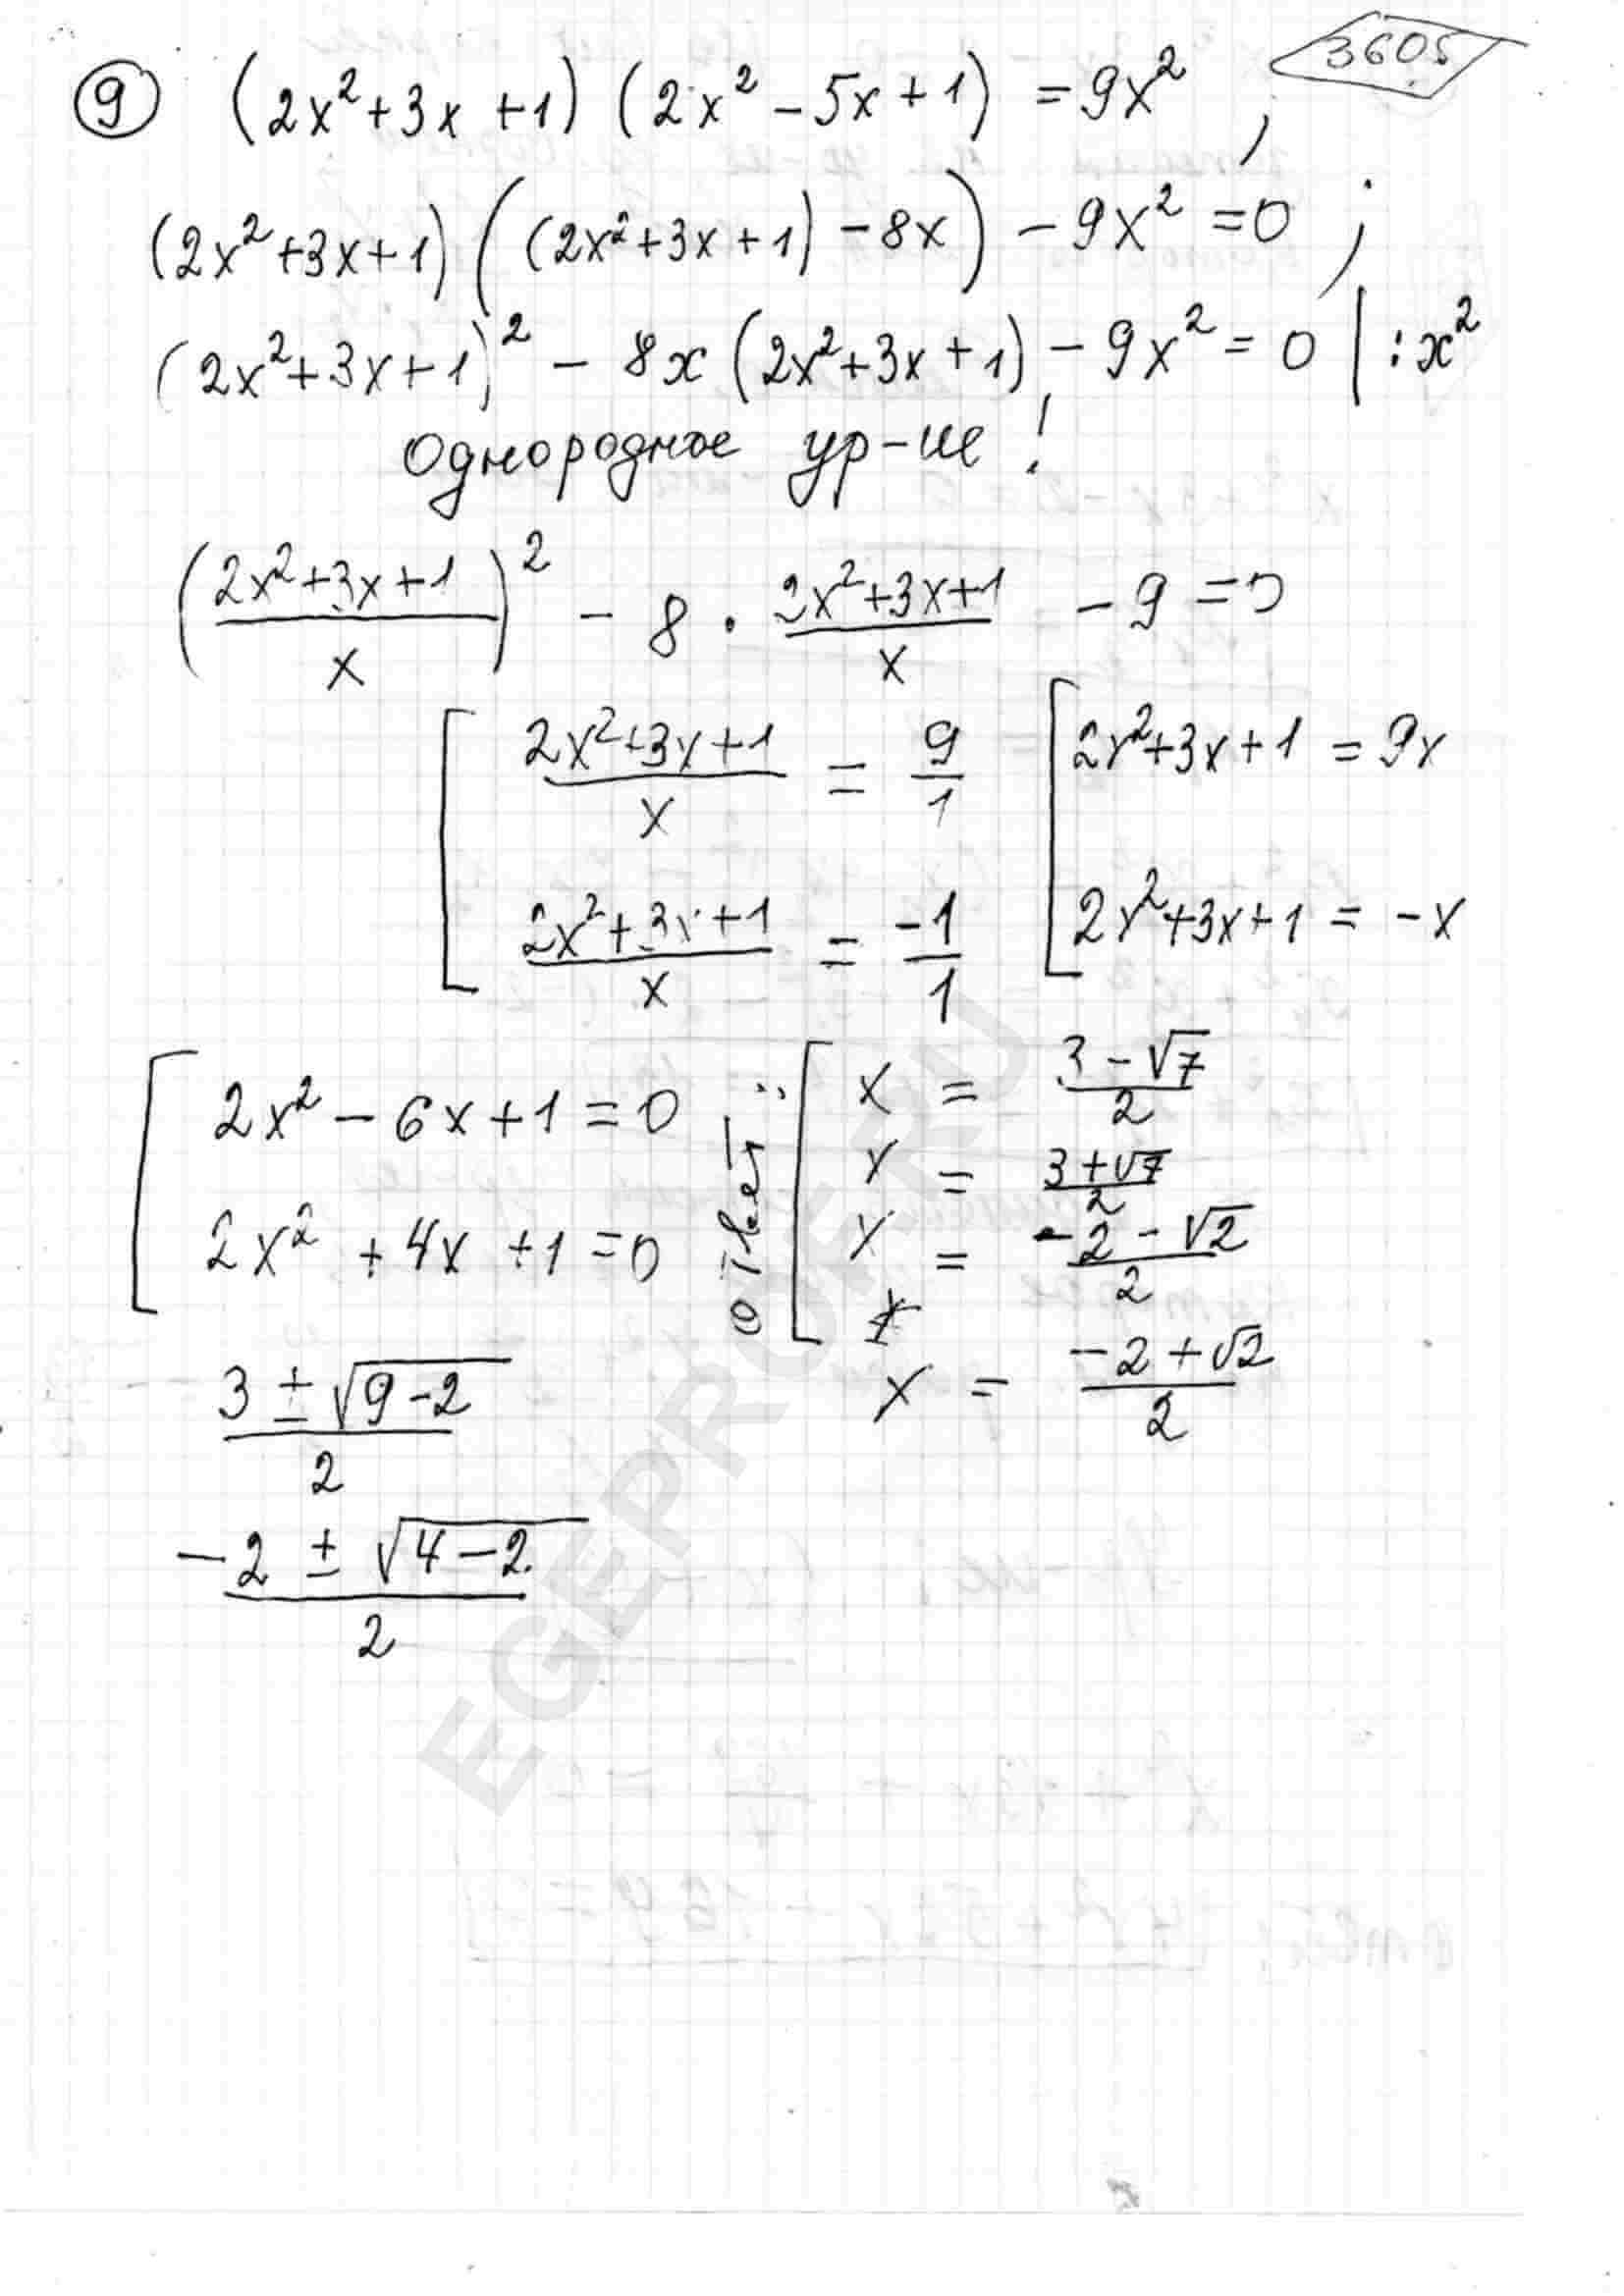 3605
⑨ (2x²+3x+1)(2x²-5x+1) = 9x²,
(2x²+3x+1)((2x²+3x+1)-8x) - 9x² = 0;
(2x²+3x+1)² - 8x(2x²+3x+1) - 9x² = 0 | :x²
Однородное ур-ие!
((2x²+3x+1)/x)² - 8 · (2x²+3x+1)/x - 9 = 0
[ (2x²+3x+1)/x = 9/1 [ 2x²+3x+1 = 9x
(2x²+3x+1)/x = -1/1 2x²+3x+1 = -x
[ 2x² - 6x + 1 = 0
2x² + 4x + 1 = 0
(3 ± √(9-2))/2
(-2 ± √(4-2))/2
Ответ:
[ x = (3-√7)/2
x = (3+√7)/2
x = (-2-√2)/2
x = (-2+√2)/2
EGEPROF.RU